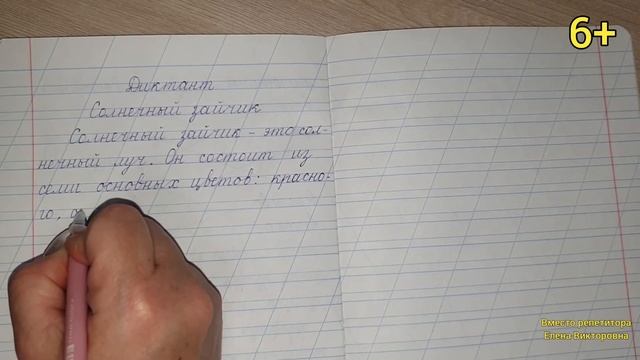 6+
Диктант
Солнечный зайчик
Солнечный зайчик - это сол-
нечный луч. Он состоит из
семи основных цветов: красно-
го, о
Вместо репетитора
Елена Викторовна